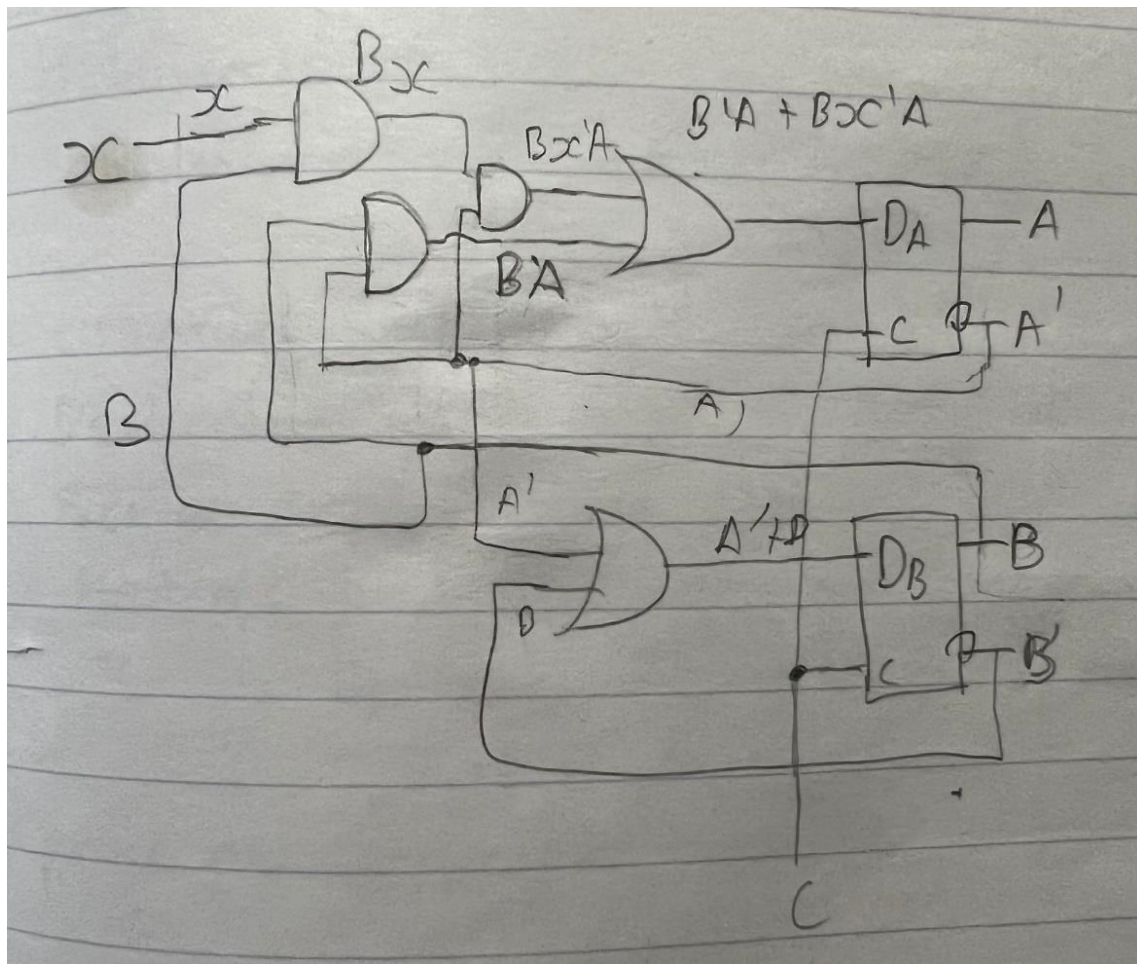 Bx
x
x
Bx'A
B'A + Bx'A
B'A
D_A
A
C
A'
A'
B
A'
A'+D
D
D_B
B
C
B'
C